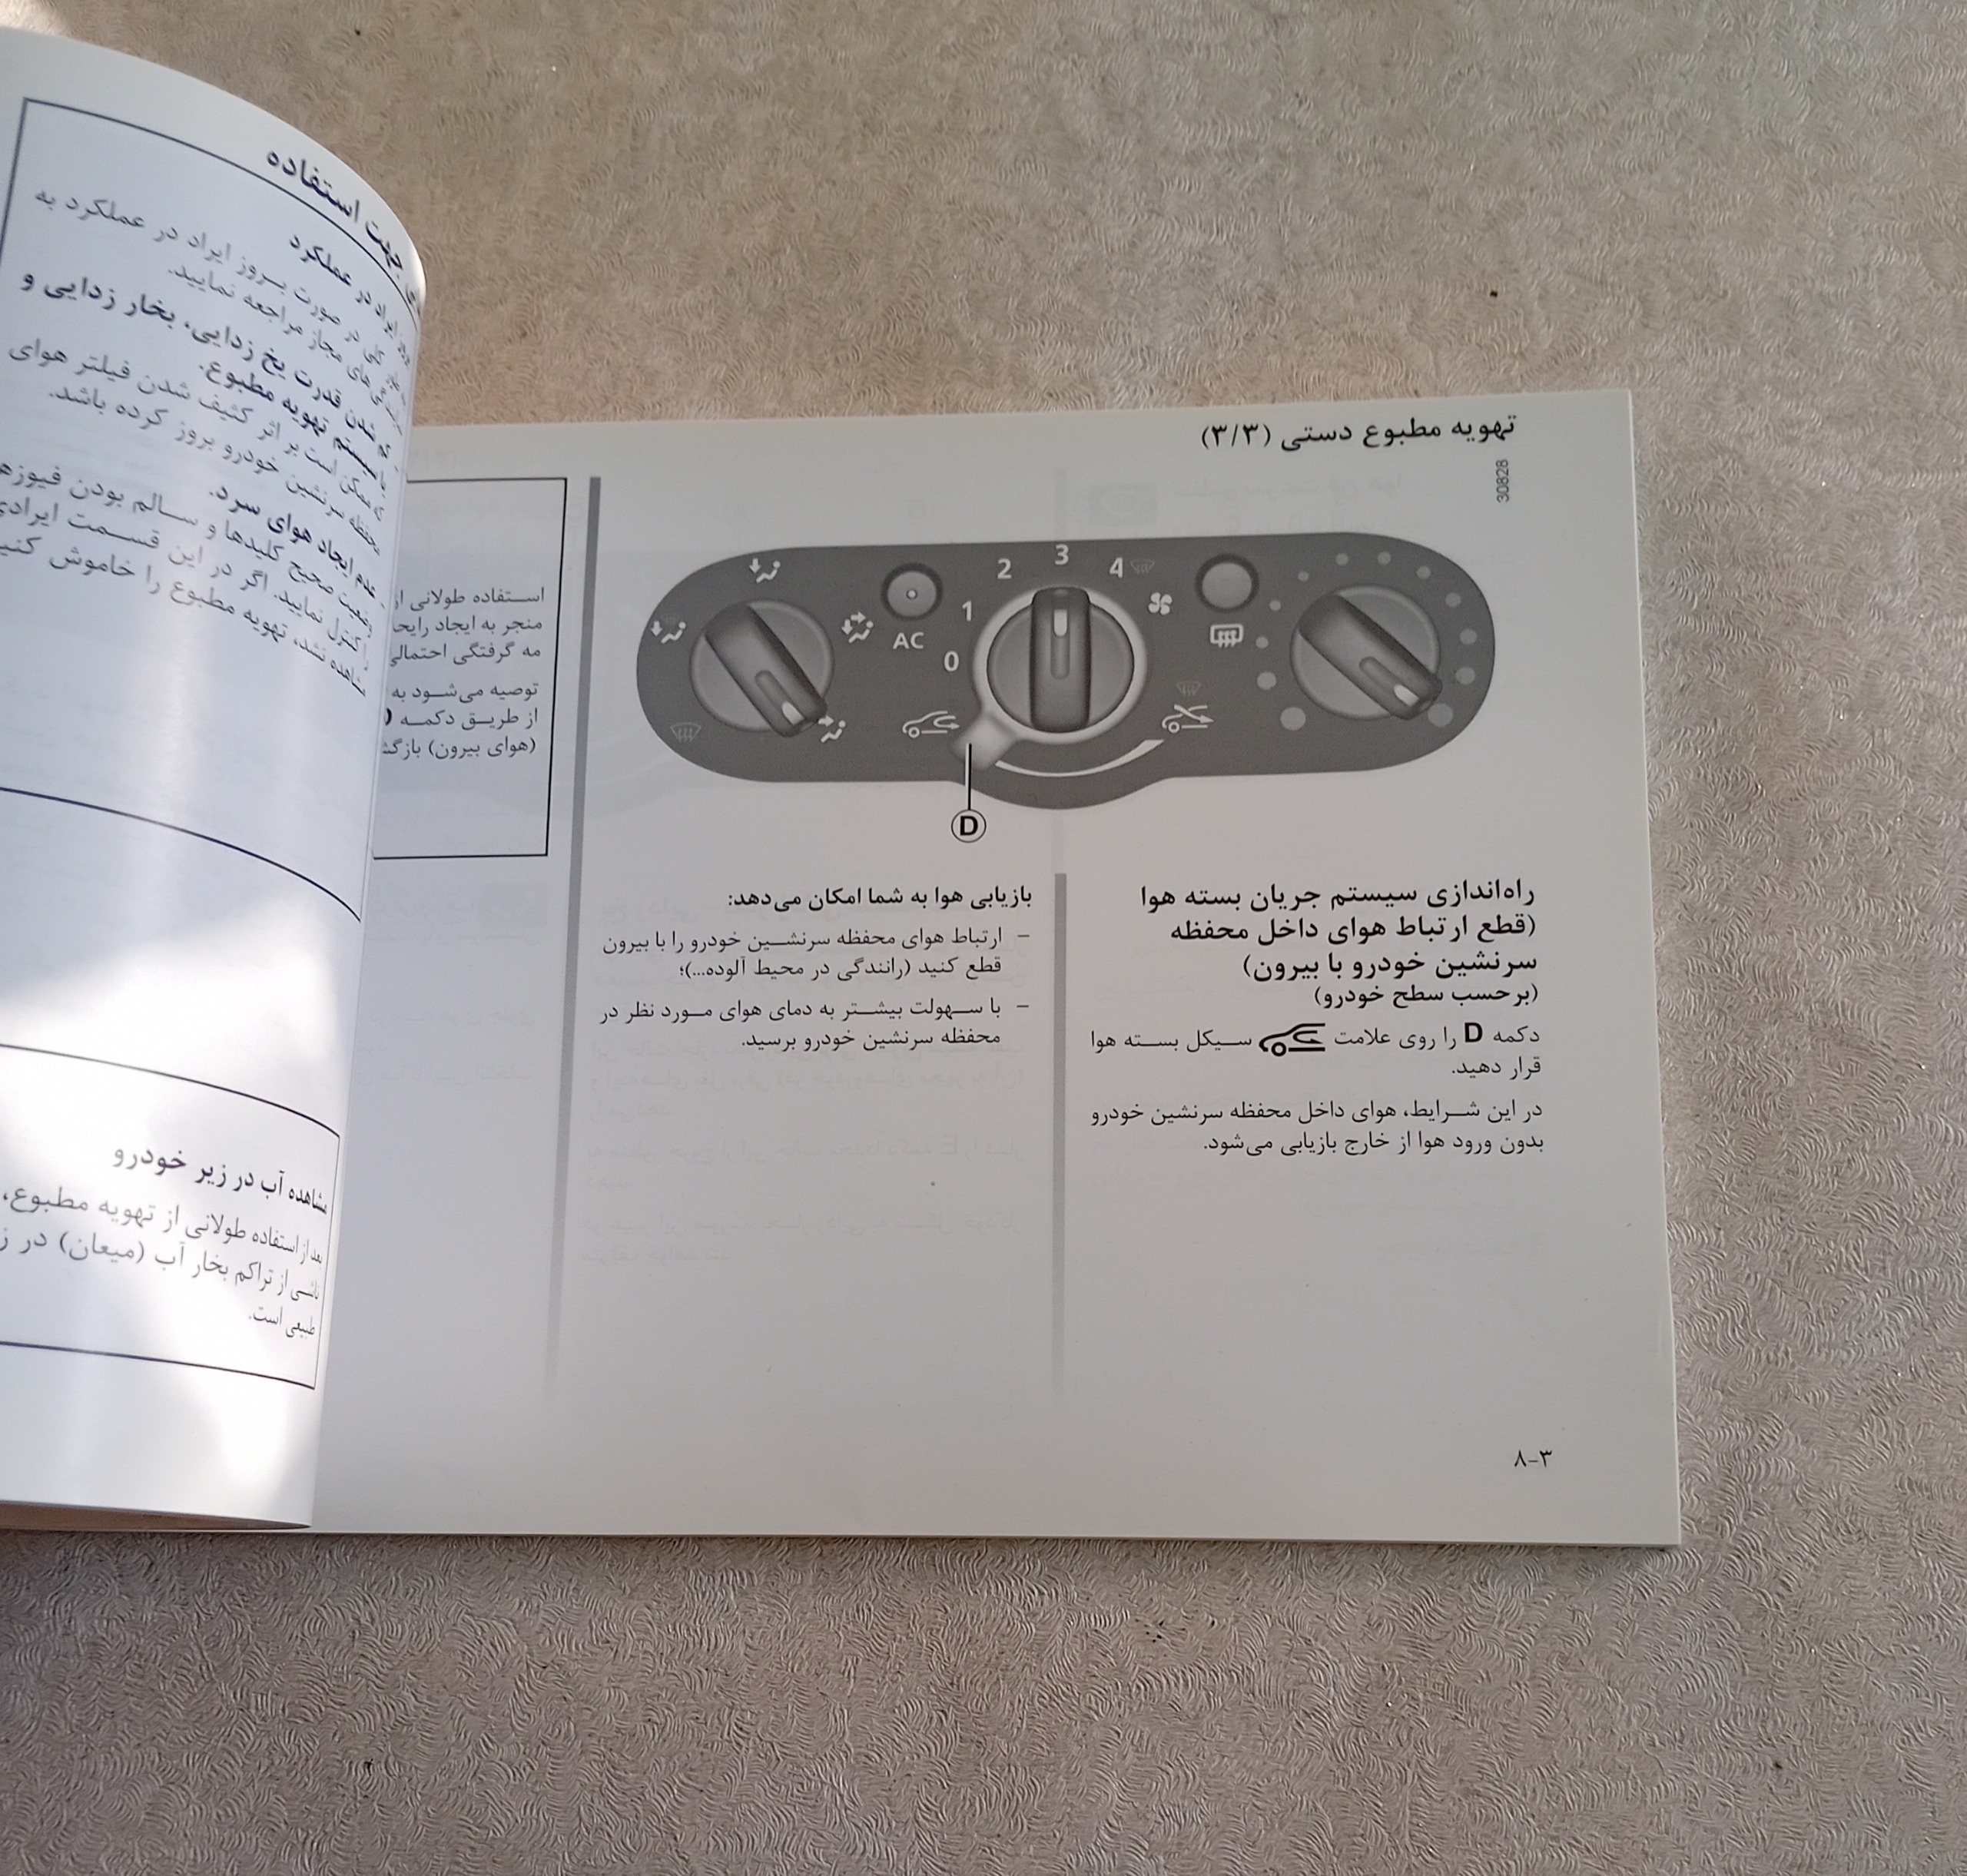 تهویه مطبوع دستی (۳/۳)
30828
0
1
2
3
4
AC
D
راه‌اندازی سیستم جریان بسته هوا
(قطع ارتباط هوای داخل محفظه
سرنشین خودرو با بیرون)
(برحسب سطح خودرو)
دکمه D را روی علامت سیکل بسته هوا
قرار دهید.
در این شرایط، هوای داخل محفظه سرنشین خودرو
بدون ورود هوا از خارج بازیابی می‌شود.
بازیابی هوا به شما امکان می‌دهد:
– ارتباط هوای محفظه سرنشین خودرو را با بیرون
قطع کنید (رانندگی در محیط آلوده...)؛
– با سهولت بیشتر به دمای هوای مورد نظر در
محفظه سرنشین خودرو برسید.
استفاده طولانی از
منجر به ایجاد
مه گرفتگی احتمالی
توصیه می‌شود به
از طریق دکمه D
(هوای بیرون)
۸-۳
جهت استفاده
ایراد در عملکرد
در صورت بروز ایراد در عملکرد به
های مجاز مراجعه نمایید.
- کم شدن قدرت یخ زدایی، بخار زدایی و
یا سیستم تهویه مطبوع.
که ممکن است بر اثر کثیف شدن فیلتر هوای
محفظه سرنشین خودرو بروز کرده باشد.
- عدم ایجاد هوای سرد.
وضعیت صحیح کلیدها و سالم بودن
را کنترل نمایید. اگر در این قسمت ایرادی
مشاهده نشد، تهویه مطبوع را خاموش
مشاهده آب در زیر خودرو
بعد از استفاده طولانی از تهویه مطبوع،
ناشی از تراکم بخار آب (میعان) در
طبیعی است.